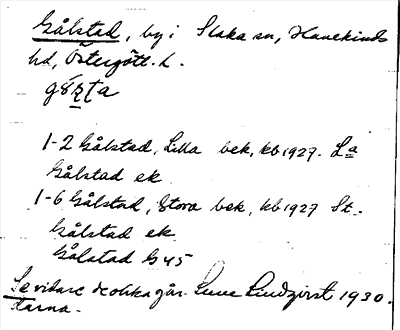 Gålstad, by i Slaka sn, Hanekinds
hd, Östergötl. L.
1-2 Gålstad, Lilla bek, kb 1927. La
Gålstad ek
1-6 Gålstad, Stora bek, kb 1927 St.
Gålstad ek
Gålstad G45
Se vidare de olika går- Sune Lindqvist 1930.
darna.